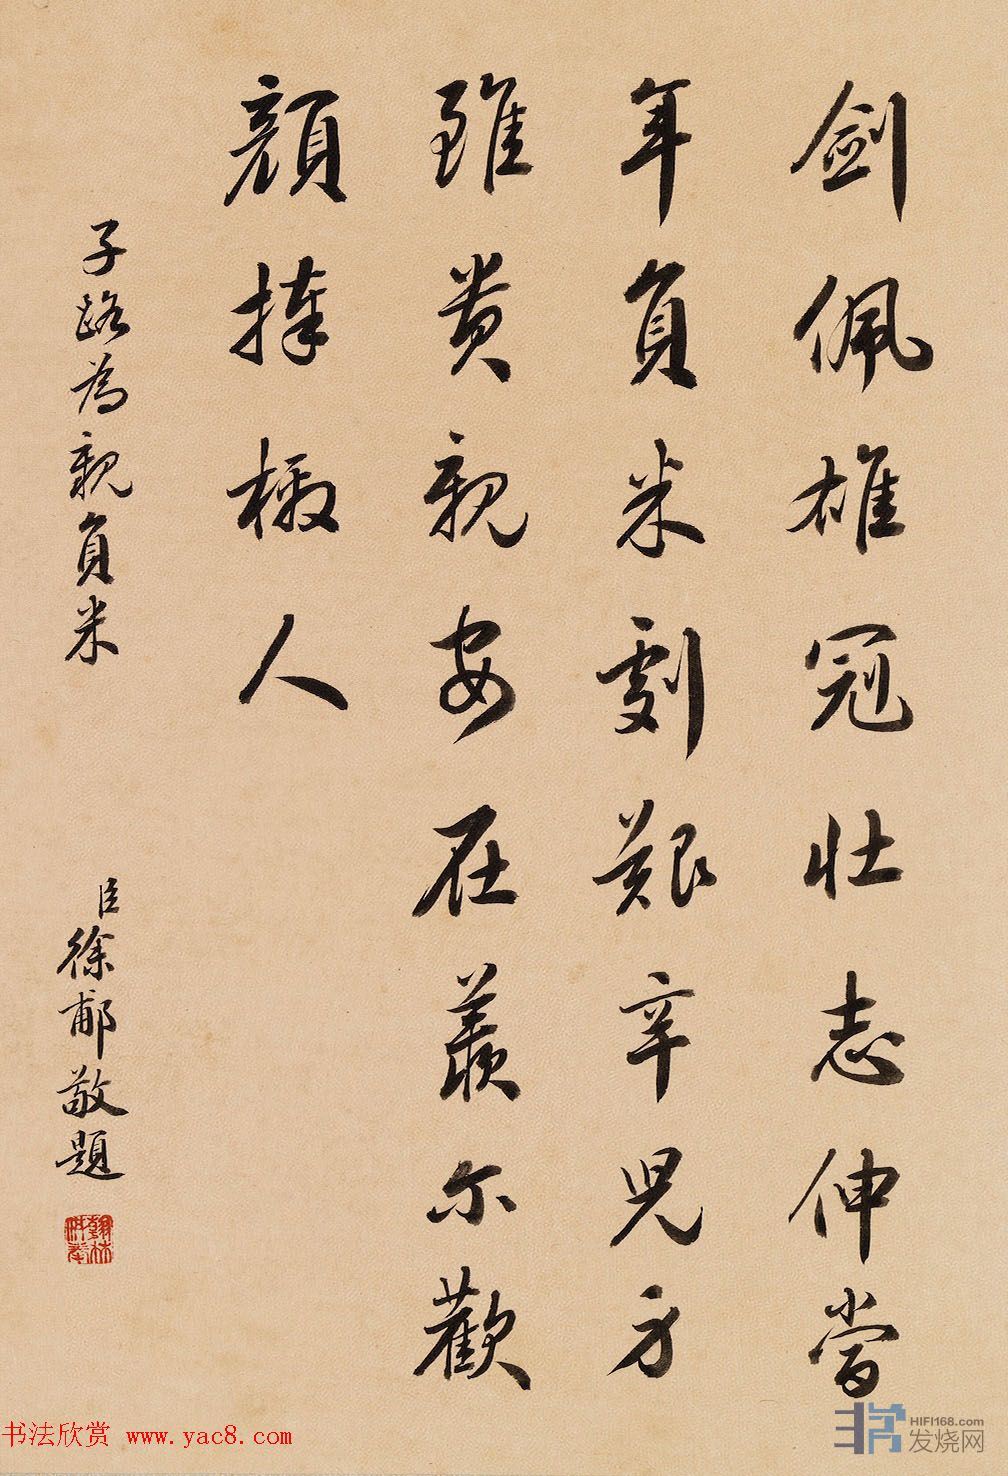 劍佩雄冠壯志伸當
年負米劇艱辛兒身
雖貴親安在羨尔歡
顏捧檄人
子路為親負米
臣徐郙敬題
翰林供奉
书法欣赏 www.yac8.com
HIFI168.com
发烧网